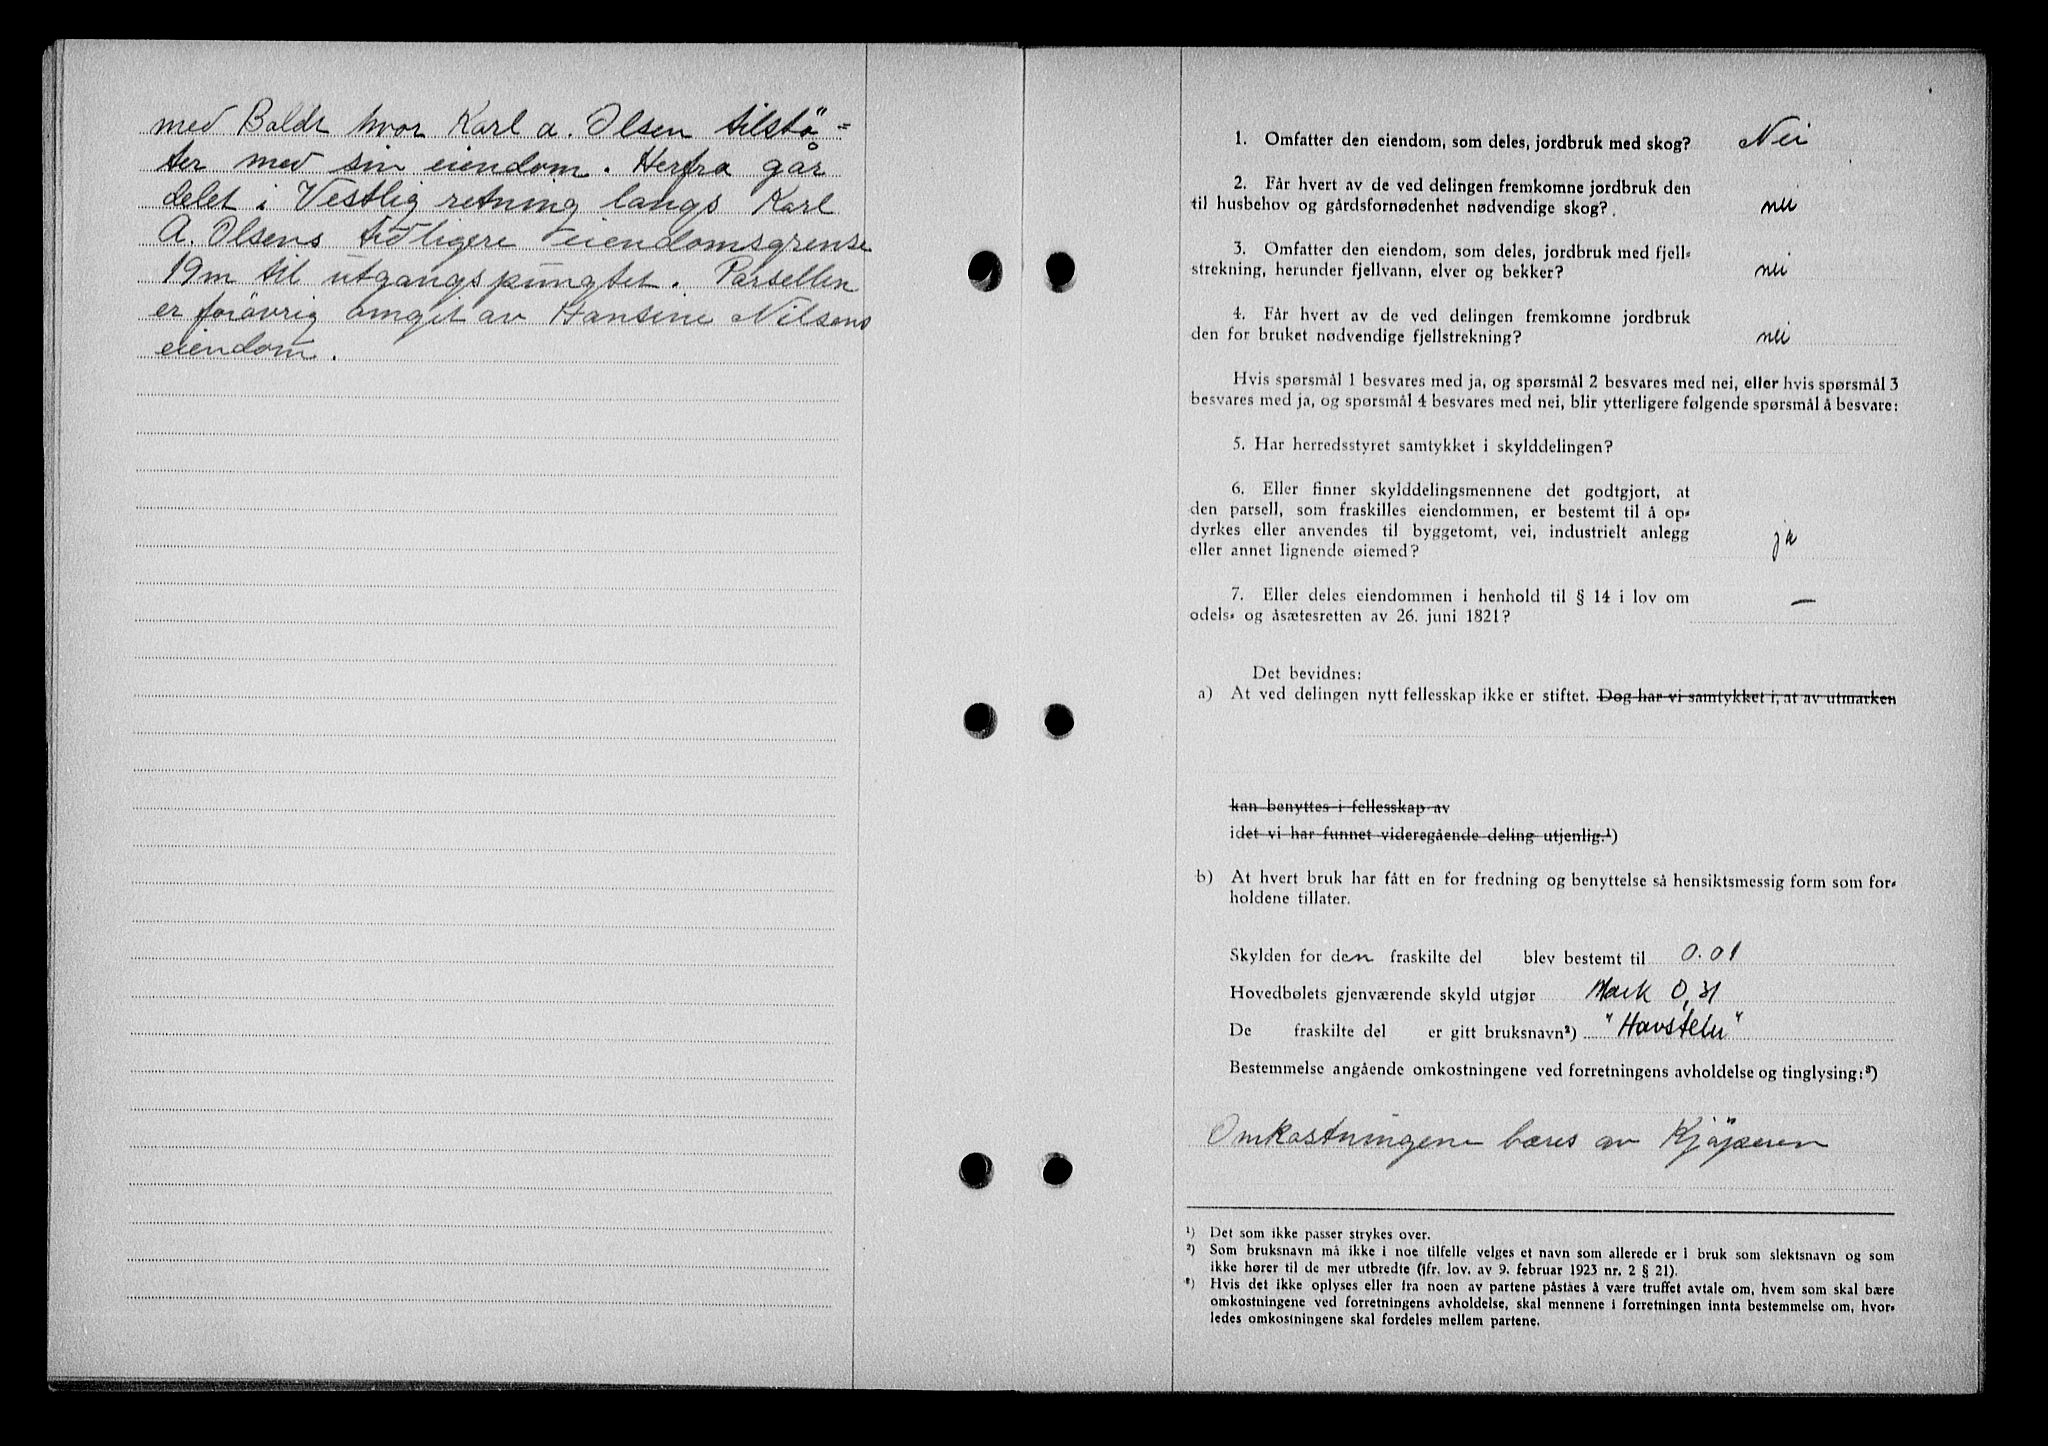 med Boldt hvor Karl a. Olsen tilstö=
ter med sin eiendom. Herfra går
delet i Vestlig retning langs Karl
A. Olsens tidligere eiendomsgrense
19m til utgangspungtet. Parsellen
er forövrig omgit av Hansine Nilsens
eiendom.
1. Omfatter den eiendom, som deles, jordbruk med skog? Nei
2. Får hvert av de ved delingen fremkomne jordbruk den
til husbehov og gårdsfornødenhet nødvendige skog? nei
3. Omfatter den eiendom, som deles, jordbruk med fjell-
strekning, herunder fjellvann, elver og bekker? nei
4. Får hvert av de ved delingen fremkomne jordbruk
den for bruket nødvendige fjellstrekning? nei
Hvis spørsmål 1 besvares med ja, og spørsmål 2 besvares med nei, eller hvis spørsmål 3
besvares med ja, og spørsmål 4 besvares med nei, blir ytterligere følgende spørsmål å besvare:
5. Har herredsstyret samtykket i skylddelingen?
6. Eller finner skylddelingsmennene det godtgjort, at
den parsell, som fraskilles eiendommen, er bestemt til å op-
dyrkes eller anvendes til byggetomt, vei, industrielt anlegg
eller annet lignende øiemed? ja
7. Eller deles eiendommen i henhold til § 14 i lov om
odels- og åsætesretten av 26. juni 1821? —
Det bevidnes:
a) At ved delingen nytt fellesskap ikke er stiftet. Dog har vi samtykket i, at av utmarken
kan benyttes i fellesskap av
idet vi har funnet videregående deling utjenlig.¹)
b) At hvert bruk har fått en for fredning og benyttelse så hensiktsmessig form som for-
holdene tillater.
Skylden for den fraskilte del blev bestemt til 0.01
Hovedbølets gjenværende skyld utgjør Mark 0,31
De fraskilte del er gitt bruksnavn²) "Havstein"
Bestemmelse angående omkostningene ved forretningens avholdelse og tinglysing:³)
Omkostningene bæres av Kjöperen
¹) Det som ikke passer strykes over.
²) Som bruksnavn må ikke i noe tilfelle velges et navn som allerede er i bruk som slektsnavn og som
ikke hører til de mer utbredte (jfr. lov. av 9. februar 1923 nr. 2 § 21).
³) Hvis det ikke oplyses eller fra noen av partene påståes å være truffet avtale om, hvem som skal bære
omkostningene ved forretningens avholdelse, skal mennene i forretningen innta bestemmelse om, hvor-
ledes omkostningene skal fordeles mellem partene.